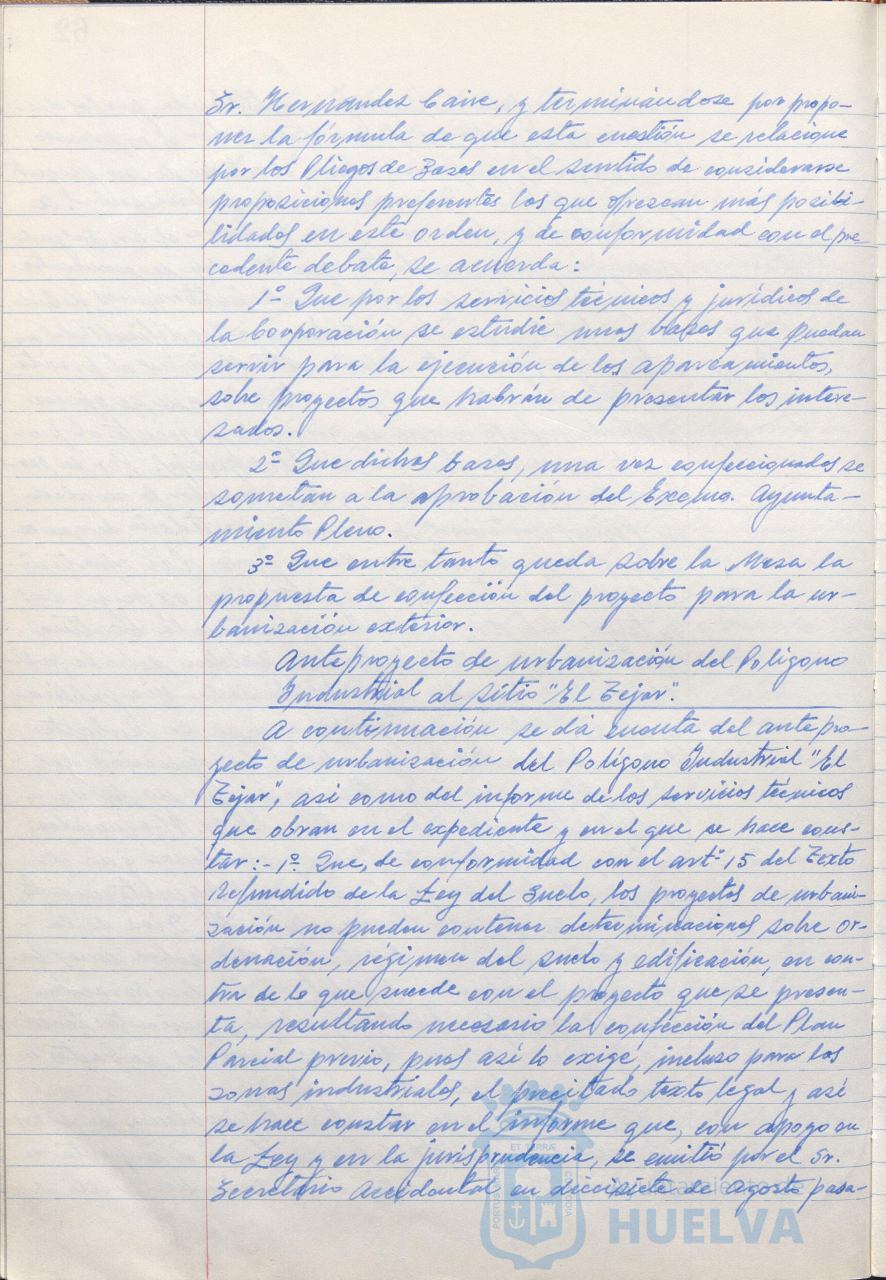 Sr. Hernandez Caire, y terminándose por propo-
ner la fórmula de que esta cuestión se relacione
por los Pliegos de Bases en el sentido de considerarse
proposiciones preferentes las que ofrezcan más posibi-
lidades en este orden, y de conformidad con el pre-
cedente debate, se acuerda:
1º Que por los servicios técnicos y jurídicos de
la Corporación se estudie unas bases que puedan
servir para la ejecución de los aparcamientos,
sobre proyectos que habrán de presentar los intere-
sados.
2º Que dichas bases, una vez confeccionadas se
sometan a la aprobación del Excmo. Ayunta-
miento Pleno.
3º Que entre tanto queda sobre la Mesa la
propuesta de confección del proyecto para la ur-
banización exterior.
Anteproyecto de urbanización del Poligono
Industrial al sitio "El Tejar".
A continuación se dá cuenta del antepro-
yecto de urbanización del Polígono Industrial "El
Tejar", así como del informe de los servicios técnicos
que obran en el expediente y en el que se hace cons-
tar:- 1º. Que, de conformidad con el artº 15 del Texto
Refundido de la Ley del Suelo, los proyectos de urbani-
zación no pueden contener determinaciones sobre or-
denación, régimen del suelo y edificación, en con-
tra de lo que sucede con el proyecto que se presen-
ta, resultando necesario la confección del Plan
Parcial previo, pues así lo exige, incluso para las
zonas industriales, el precitado texto legal y así
se hace constar en el informe que, con apoyo en
la Ley y en la jurisprudencia, se emitió por el Sr.
Secretario Accidental en diecisiete de agosto pasa-
Ayuntamiento de
HUELVA